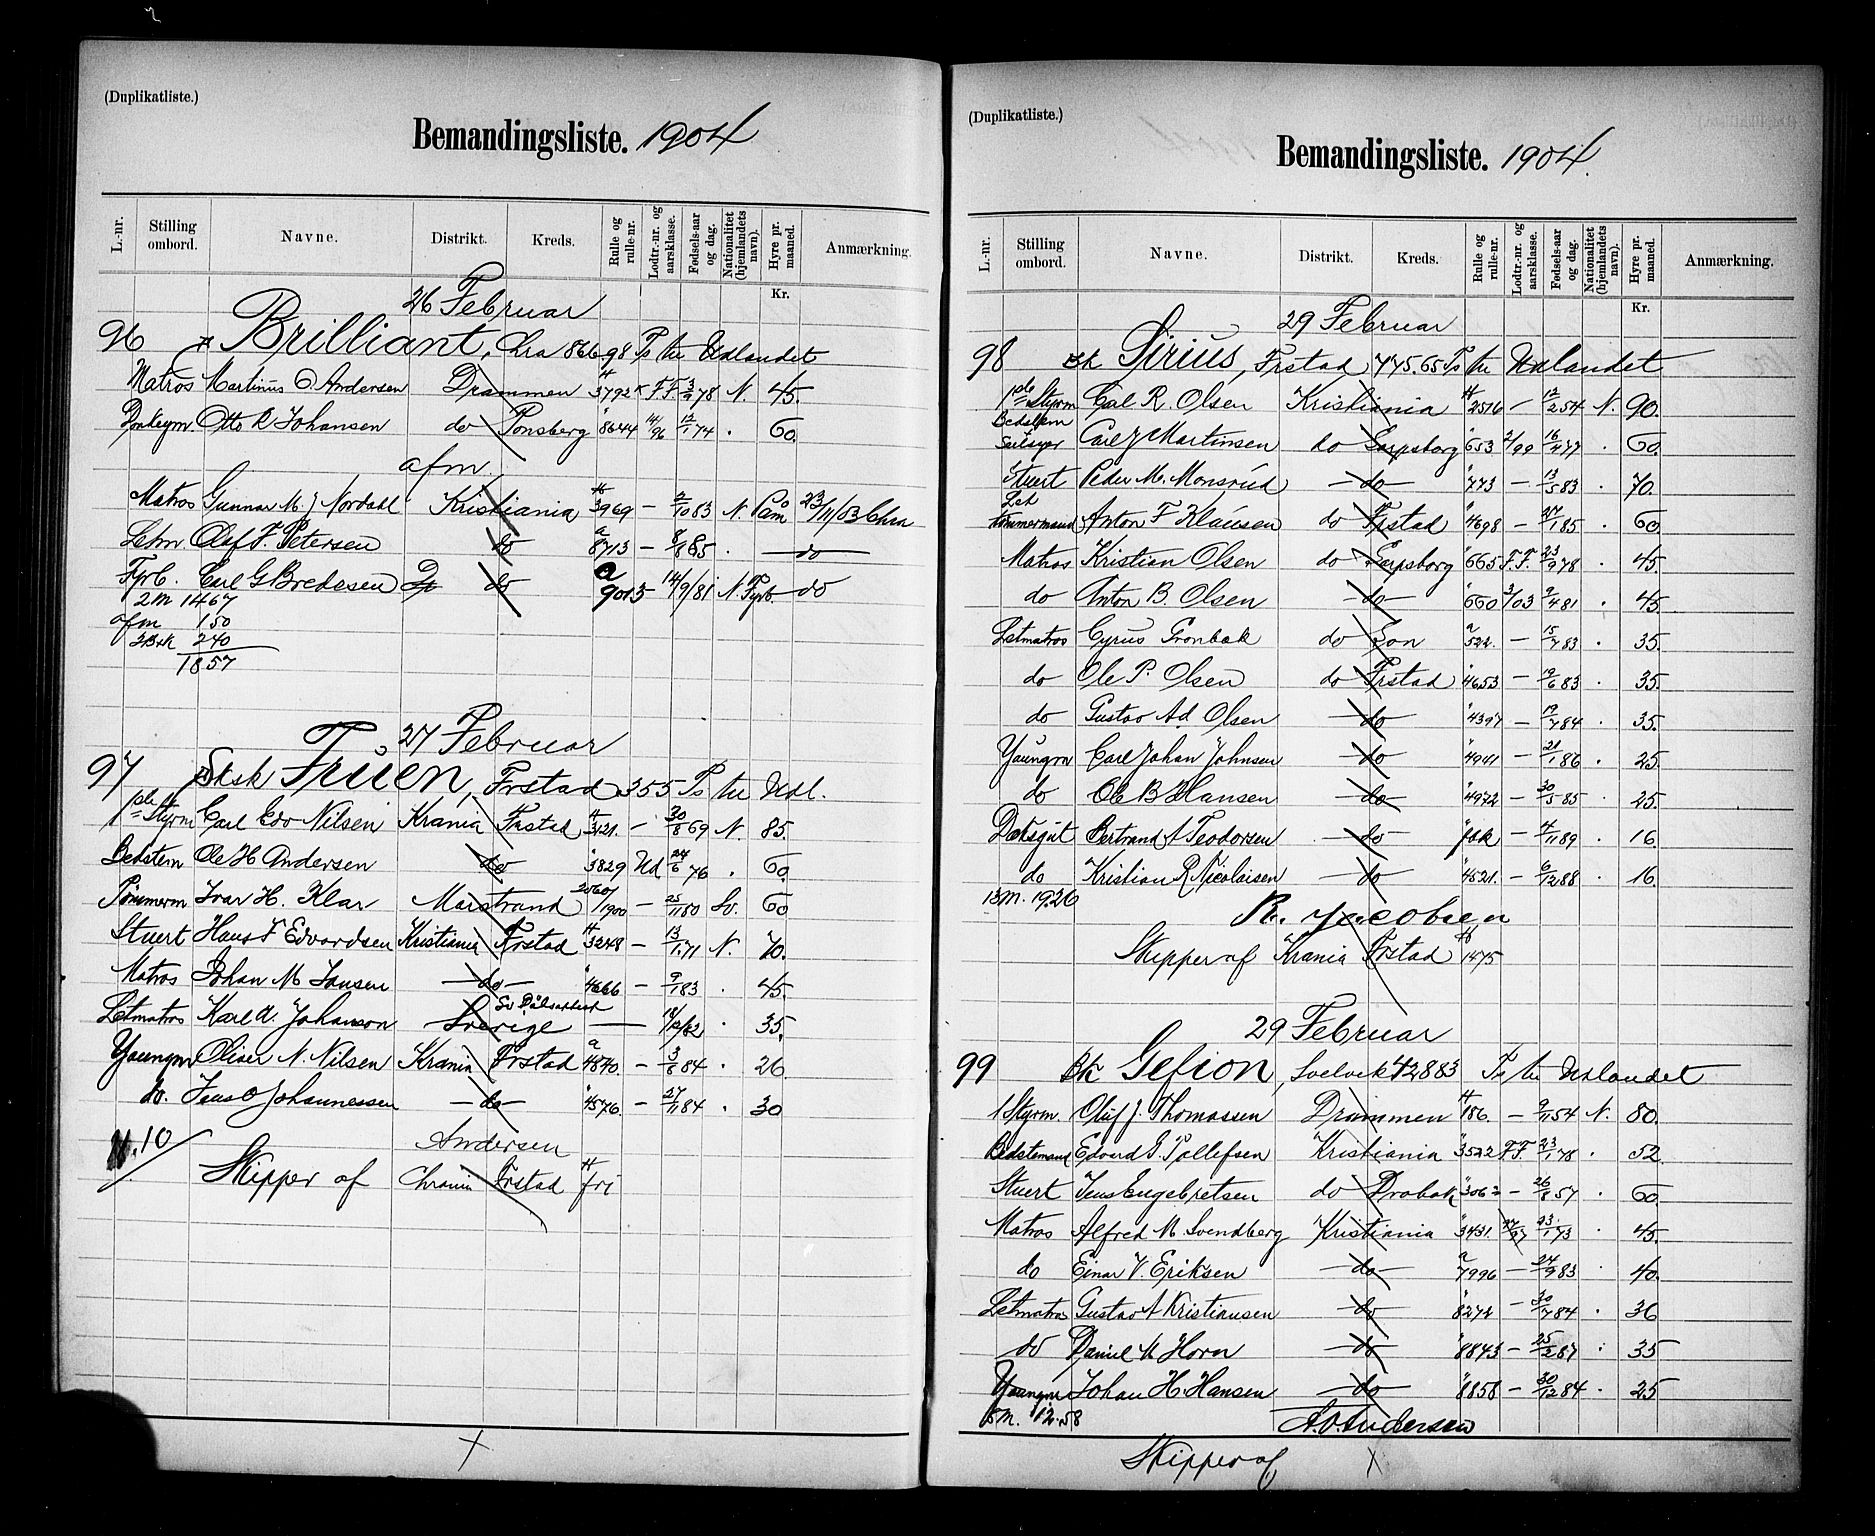 (Duplikatliste.)
Bemandingsliste. 1904
L.-nr. Stilling ombord. Navne. Distrikt. Kreds. Rulle og rulle-nr. Lodtr.-nr. og aarsklasse. Fødsels-aar og dag. Nationalitet (hjemlandets navn). Hyre pr. maaned. Anmærkning.
Kr.
26 Februar
96 Brilliant, Chra 866.98 Ts til Udlandet
Matros Martinus O. Andersen Drammen H 3792 F.F. 3/2 78 N. 45.
Otto R Johansen do Tønsberg " 8644 14/96 12/1 74 . 60.
afm.
Matros Gunnar M. J Nordahl Kristiania H 3969 – 2/10 83 N. 23/11/03 Chra
Letm. Olaf F. Petersen do a 8713 – 8/8 85 . do
Fyrb. Carl G Bredesen do a 9013 – 14/9/81 N. Fyrb. do
2 M 1467
afm 150
240
1857
27 Februar
97 Sksk Fruen, Frstad 355 Ts til Udl.
1ste Styrm Carl Edv Nilsen Krania Frstad H 3121. – 30/8 69 N. 85.
Bedstem Ole H Andersen do " 3829 Ud 24/6 76 . 60.
Tømmerm Ivar H. Klar Marstrand 2560/1900 – 25/11 80 Sv. 60
Stuert Hans F Edvardsen Kristiania Frstad H 3248 – 13/1 71 N. 70.
Matros Johan M Jansen do " 4666 – 9/1 83 . 45.
Letmatros Karl A. Johanson Sverige — . 35.
Youngm Oliver N. Nilsen Krania Frstad a 4840. – 3/8 84 . 26
do. Jens O Johannessen do " 4576. – 27/11 84 . 30
M. 10
Andersen
Skipper af Chrania Frstad H fri
(Duplikatliste.)
Bemandingsliste. 1904.
L.-nr. Stilling ombord. Navne. Distrikt. Kreds. Rulle og rulle-nr. Lodtr.-nr. og aarsklasse. Fødsels-aar og dag. Nationalitet (hjemlandets navn). Hyre pr. maaned. Anmærkning.
Kr.
29 Februar
98 Bk Sirius, Frstad 775.65 Ts til Udlandet
1ste Styrm Carl R. Olsen Kristiania H 2516 – 12/2 54 N. 90.
Bedstem
Seilmager Carl J Martinsen do Sarpsborg " 653 2/99 16/4 77 . 60.
Stuert Peder M. Monsrud do " 773 – 13/5 83 . 70.
Let
tømmermand Anton F Klausen do Frstad " 4698 – 27/1 85 . 60
Matros Kristian Olsen do Sarpsborg " 665 F.F. 23/9 78 . 45.
do Anton B. Olsen do " 660 3/03 9/4 81 . 45
Letmatros Cyrus Grønbak do Son a 522. – 15/7 83 . 35.
do Ole P. Olsen do Frstad " 4653 – 19/6 83 . 35.
do Gustav Ad Olsen do " 4397 – 19/7 84 . 35.
Youngm Carl Johan Johnsen do " 4941 – 21/1 86 . 25
do Ole B Hansen do " 4972 – 30/5 85 . 25.
Dæksgut Bertrand A Teodorsen do – 4/11 89 . 16.
do Kristian R Nicolaisen do " 4521. – 6/12 88 . 16.
13 M. 1926
R. Jacobsen
Skipper af Krania Frstad H 1475
29 Februar
99 Bk Gefion, Svelvik 428 83 Ts til Udlandet
1 Styrm. Oluf J. Thomassen Drammen H 186. – 9/11 54 N. 80.
Bedstemand Edvard S. Tollefsen Kristiania " 3522 F.F 23/1 78 . 52.
Stuert Jens Engebretsen do Drøbak " 3062 – 26/8 57 . 60.
Matros Alfred M. Svendberg Kristiania " 3431. 23/1 73 . 45.
do Einar V. Eriksen do a 7996 – 24/9 83 . 40.
Letmatros Gustav A Kristiansen do " 8272 – 30/7 84 . 36
do Daniel M Horn do " 8843 – 25/2 87 . 35
Youngm Johan H. Hansen do " 8858 – 30/12 84 . 25
8 M. 12.58
A. O. Andersen
Skipper af